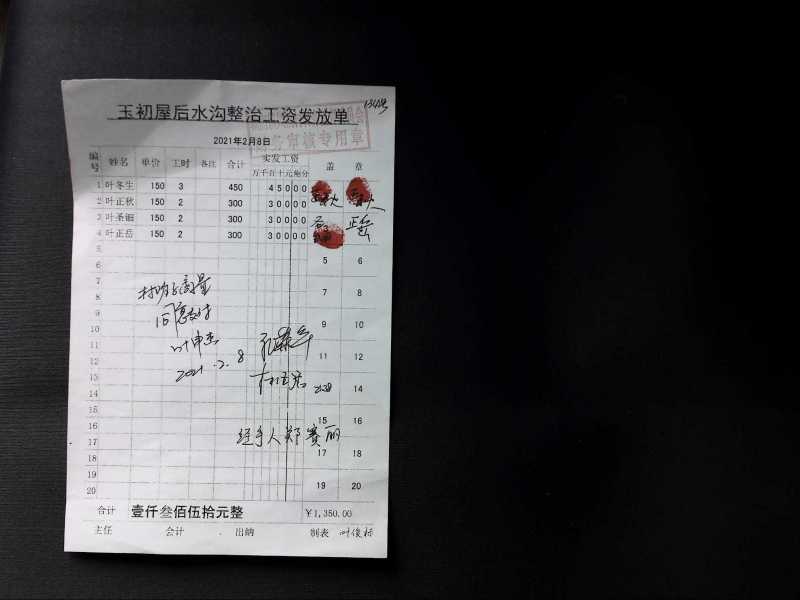 玉初屋后水沟整治工资发放单
2021年2月8日
审核专用章
编号 姓名 单价 工时 备注 合计 实发工资 盖 章
万千百十元角分
1 叶冬生 150 3 450 45000
2 叶正秋 150 2 300 30000
3 叶圣钿 150 2 300 30000
4 叶正岳 150 2 300 30000 正岳
5 5 6
6
7 7 8
8
9 9 10
10
11 11 12
12
13 14
14
15 15 16
16
17 17 18
18
19 19 20
20
同意支付
叶申杰
2021.2.8
经手人郑赛丽
合计 壹仟叁佰伍拾元整 ¥1,350.00
主任 会计 出纳 制表 叶俊标